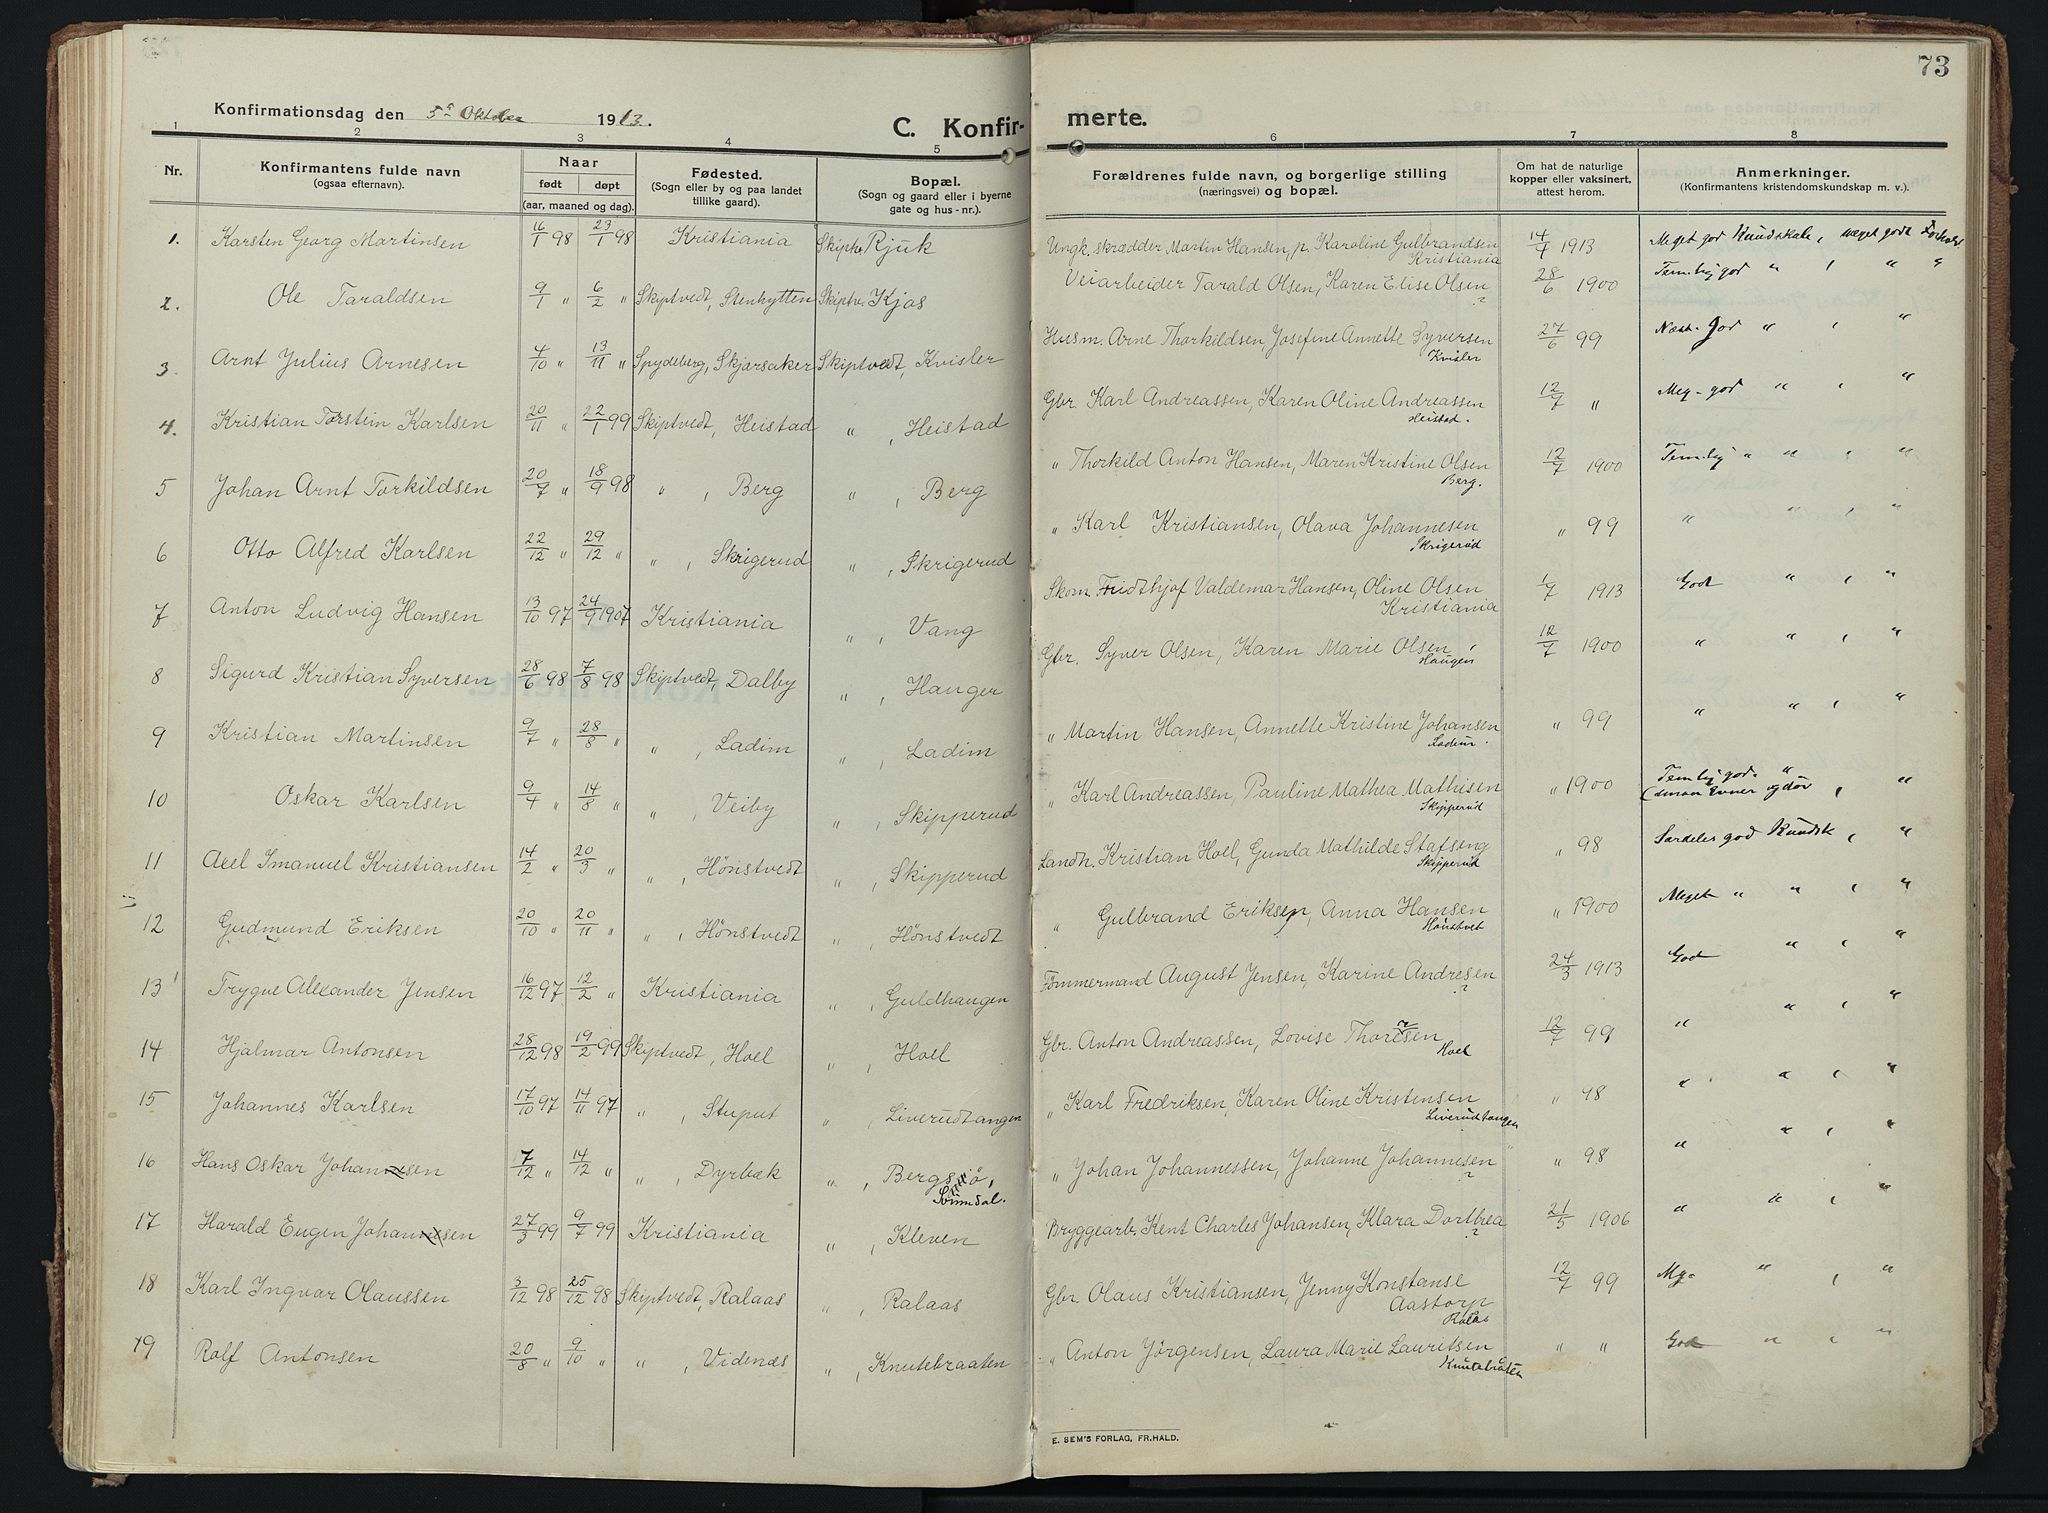 73
Konfirmationsdag den 5te Oktober 1913.
C. Konfirmerte.
1 2 3 4 5 6 7 8
Nr. Konfirmantens fulde navn (ogsaa efternavn). Naar født døpt (aar, maaned og dag). Fødested. (Sogn eller by og paa landet tillike gaard). Bopæl. (Sogn og gaard eller i byerne gate og hus-nr.). Forældrenes fulde navn, og borgerlige stilling (næringsvei) og bopæl. Om hat de naturlige kopper eller vaksinert, attest herom. Anmerkninger. (Konfirmantens kristendomskundskap m. v.).
1. Karsten Georg Martinsen 16/1 98 23/1 98 Kristiania Skiptv. Rjuk Ungk. skrædder Martin Hansen, p. Karoline Gulbrandsen Kristiania 14/4 1913 Meget god Kundskab, meget godt Forhold
2. Ole Taraldsen 9/1 " 6/2 " Skiptvedt, Stenhytten Skiptv. Kjos Veiarbeider Tarald Olsen, Karen Elise Olsen ? 28/6 1900 Temlig god " , " "
3. Arnt Julius Arnesen 4/10 " 13/11 " Spydeberg, Skjørsaker Skiptvedt, Kvisler Husm. Arne Thorkildsen, Josefine Annette Syversen Kvisler 27/6 99 Næst. god " , "
4. Kristian Torstein Karlsen 20/11 " 22/1 99 Skiptvedt, Heistad " , Heistad Gbr. Karl Andreassen, Karen Oline Andreassen Heistad. 12/7 " Meg. god " , "
5 Johan Arnt Torkildsen 20/7 " 18/9 98 " , Berg " , Berg " Thorkild Anton Hansen, Maren Kristine Olsen Berg. 12/7 1900 Temlig " " , "
6 Otto Alfred Karlsen 22/12 " 29/12 " " , Skrigerud " , Skrigerud " Karl Kristiansen, Olava Johannesen Skrigerud " 99 " " , "
7 Anton Ludvig Hansen 13/10 97 24/9 1907 Kristiania " , Vang Skom. Fridthjof Valdemar Hansen, Oline Olsen Kristiania 1/7 1913 Godt " , "
8 Sigurd Kristian Syversen 28/6 98 7/8 98 Skiptvedt, Dalby " , Hauger Gbr. Syver Olsen, Karen Marie Olsen, Haugen 12/7 1900 " " , "
9 Kristian Martinsen 9/7 " 28/8 " " , Ladim " , Ladim " Martin Hansen, Annette Kristine Johansen Ladim. " 99 " " , "
10 Oskar Karlsen 9/4 " 14/8 " " , Veiby " , Skipperud " Karl Andreassen, Pauline Mathea Mathisen Skipperud " 1900 Temlig god. " , "
11 Axel Imanuel Kristiansen 14/2 " 20/3 " " , Hønstvedt " , Skipperud Landh. Kristian Hoel, Gunda Mathilde Stafseng Skipperud " 98 Særdeles god Kundsk , "
12 Gudmund Eriksen 20/10 " 20/11 " " , Hønstvedt " , Hønstvedt " Gulbrand Eriksen, Anna Hansen Hønstvet " 1900 Meget " " , "
13 Trygve Alexander Jensen 16/12 97 12/2 " Kristiania " , Guldhaugen Tømmermand August Jensen, Karine Andresen ? 24/3 1913 God " , "
14 Hjalmar Antonsen 28/12 98 19/2 99 Skiptvedt, Hoel " , Hoel Gbr. Anton Andreassen, Lovise Thoresen Hoel 12/7 99 " " , "
15 Johannes Karlsen 17/10 97 14/11 97 " , Stuput " , Liverudtangen " Karl Fredriksen, Karen Oline Kristensen Liverudtangen " 98 " " , "
16 Hans Oskar Johannesen 7/12 " 14/12 " " , Dyrbæk " , Bergsjø, Sømdal. " Johan Johannessen, Johanne Johannesen ? " 98 " " , "
17 Harald Eugen Johannesen 27/3 99 9/7 99 Kristiania " , Kleven Bryggearb. Kent Charles Johansen, Klara Dorthea ? 21/5 1906 " " , "
18 Karl Ingvar Olaussen 3/12 98 25/12 98 Skiptvedt, Ralaas " , Ralaas Gbr. Olaus Kristiansen, Jenny Konstanse Aastorp Ralås 12/7 99 Mg. " , "
19 Rolf Antonsen 20/8 " 9/10 " " , Videnæs " , Knutebraaten " Anton Jørgensen, Laura Marie Lauritsen Knutebråten " " God " , "
E. SEM'S FORLAG, FR.HALD.